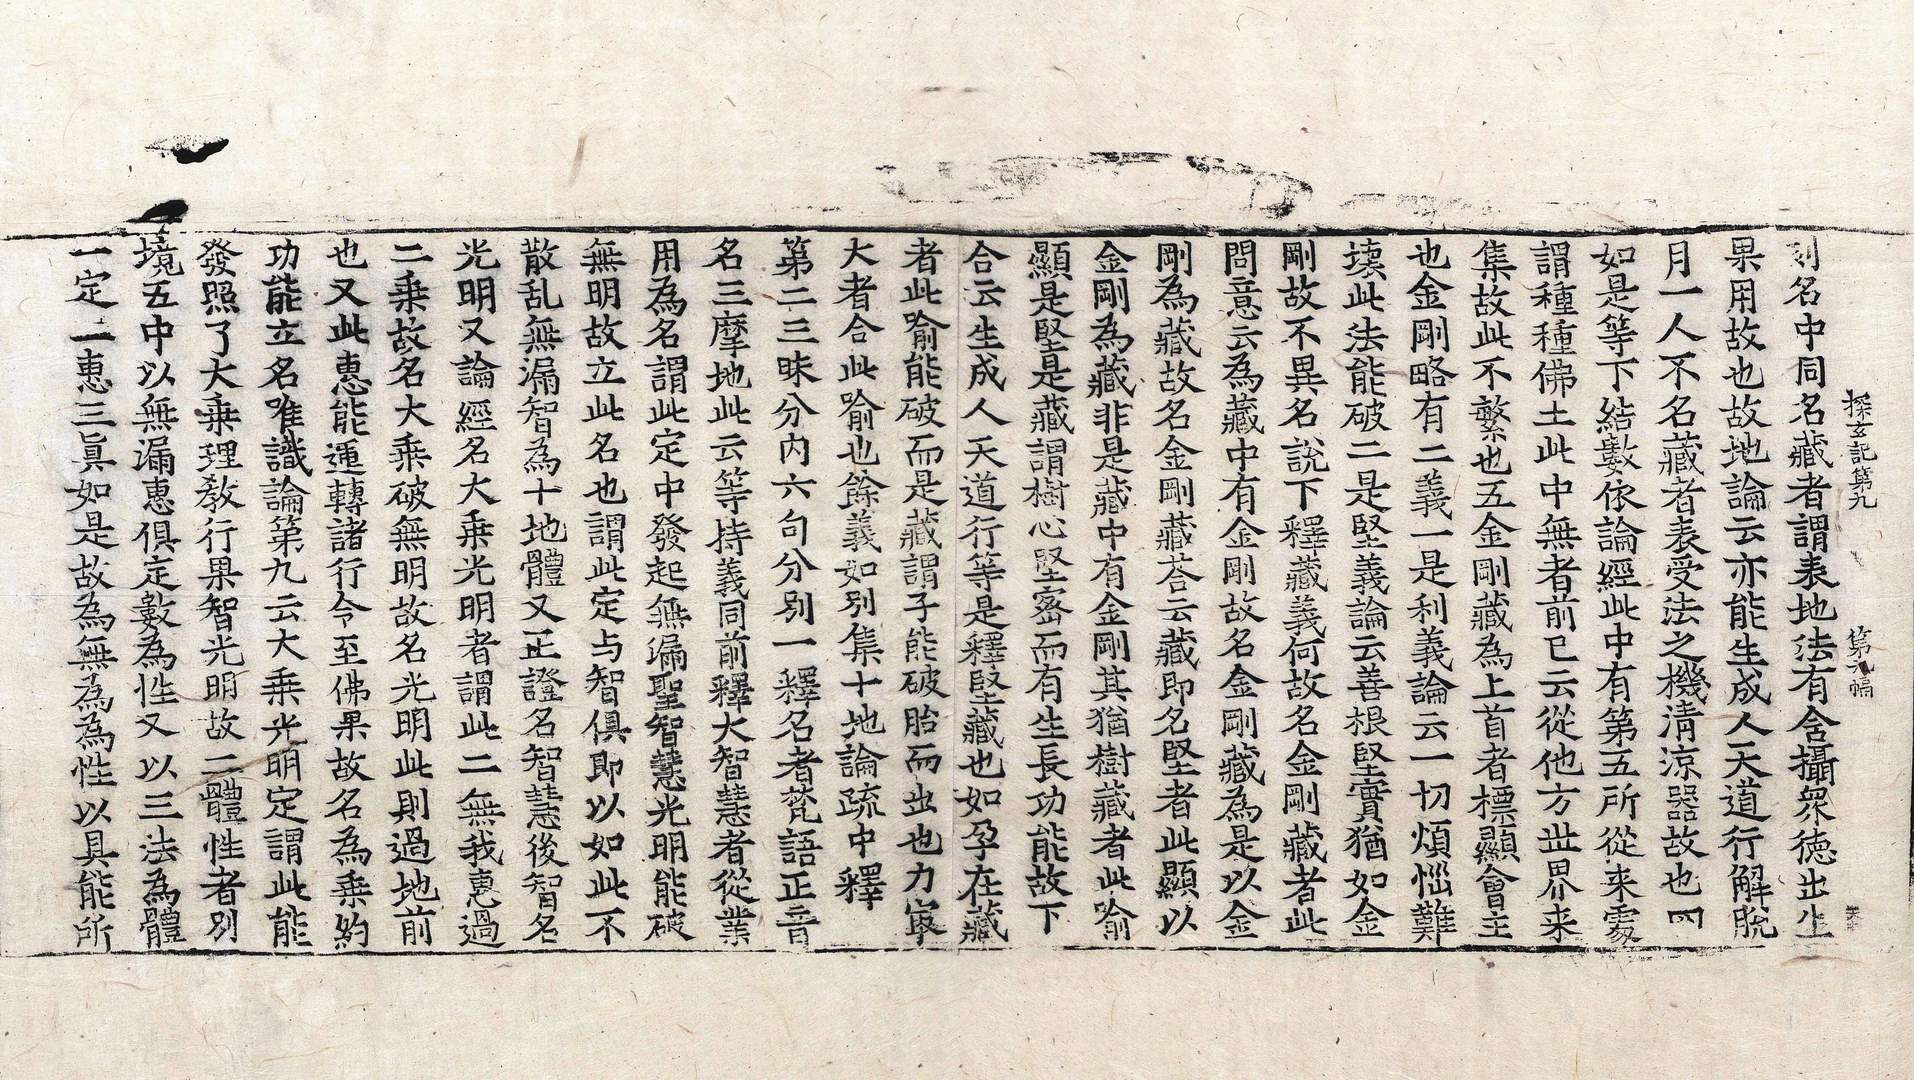 探玄記第九　第　幅
别名中同名藏者謂表地法有含攝衆德出生
果用故也故地論云亦能生成人天道行解脱
月一人不名藏者表受法之機清涼器故也四
如是等下結數依論經此中有第五所從来處
謂種種佛土此中無者前已云從他方世界来
集故此不繁也五金剛藏為上首者標顯會主
也金剛略有二義一是利義論云一切煩惱難
壊此法能破二是堅義論云善根堅實猶如金
剛故不異名說下釋藏義何故名金剛藏者此
問意云為藏中有金剛故名金剛藏為是以金
剛為藏故名金剛藏荅云藏即名堅者此顯以
金剛為藏非是藏中有金剛其猶樹藏者此喻
顯是堅是藏謂樹心堅宻而有生長功能故下
合云生成人天道行等是釋堅藏也如孕在藏
者此喻能破而是藏謂子能破胎而出也力寧
大者合此喻也餘義如别集十地論疏中釋
第二三昧分内六句分别一釋名者梵語正音
名三摩地此云等持義同前釋大智慧者從業
用為名謂此定中發起無漏聖智慧光明能破
無明故立此名也謂此定与智俱即以如此不
散乱無漏智為十地體又正證名智慧後智名
光明又論經名大乗光明者謂此二無我惠過
二乗故名大乗破無明故名光明此則過地前
也又此惠能運轉諸行令至佛果故名為乗約
功能立名唯識論第九云大乗光明定謂此能
發照了大乗理教行果智光明故二體性者别
境五中以無漏惠俱定數為性又以三法為體
一定二惠三真如是故為無為為性以具能所